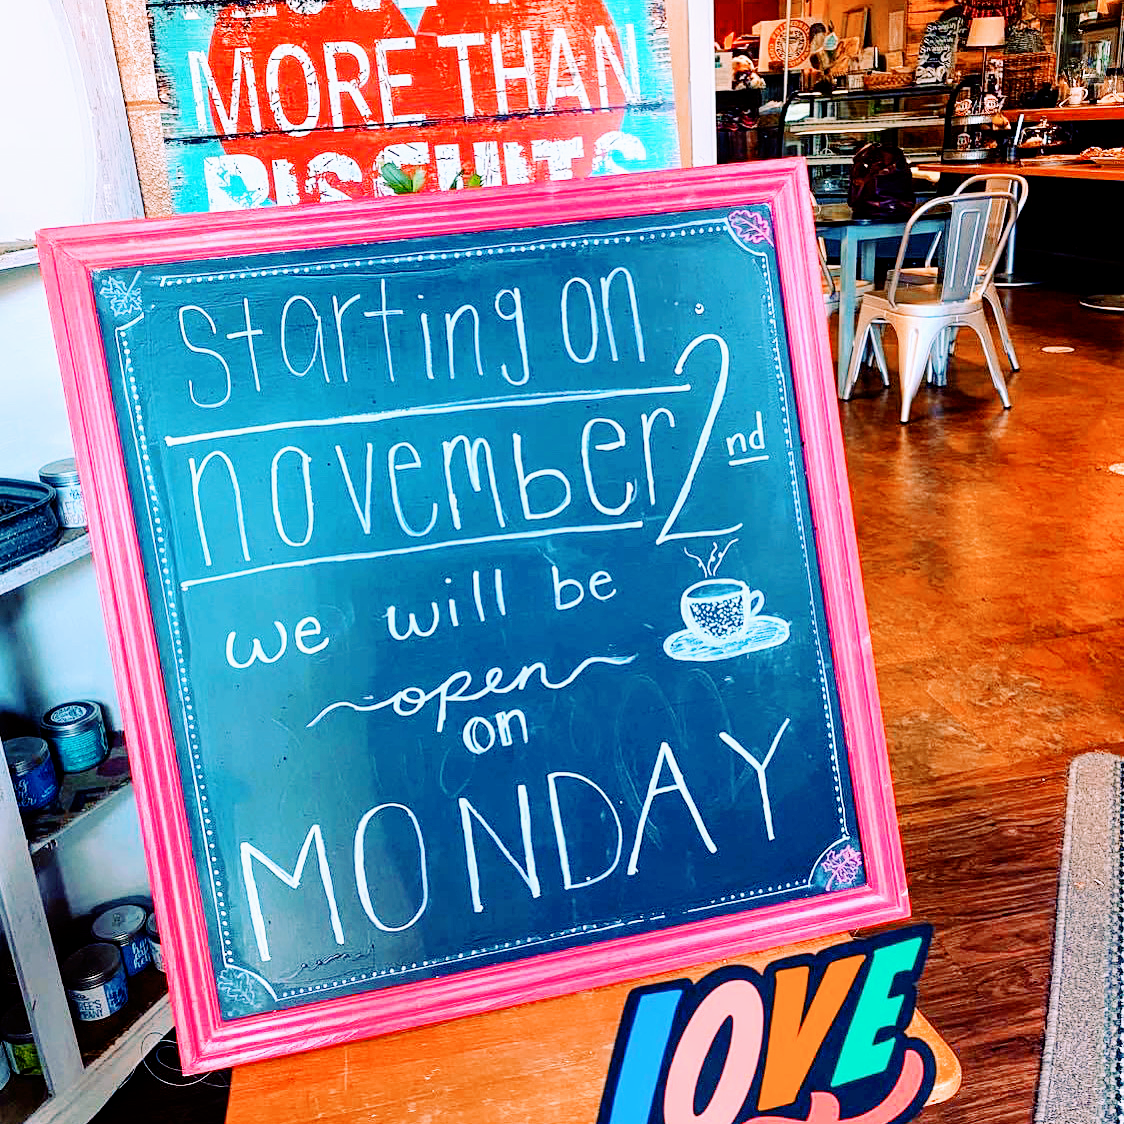 MORE THAN
BISCUITS
starting on
november 2nd
we will be
open
on
MONDAY
LOVE